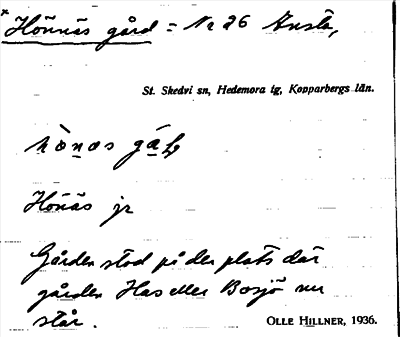 × Hönnäs gård = No 26 Ansta,
St. Skedvi sn, Hedemora tg, Kopparbergs län.
Hönäs jr
Gården stod på den plats där
gården Has eller Bosjö nu
står.
OLLE HILLNER, 1936.